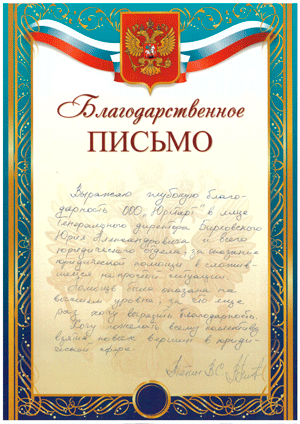 Благодарственное
ПИСЬМО
Выражаю глубокую благо-
дарность ООО "Юритар" в лице
Генерального директора
Юрия Александровича и всего
юридического отдела, за оказание
юридической помощи в сложив-
шейся непростой ситуации.
Помощь была оказана на
высшем уровне, за что еще
раз хочу выразить благодарность.
Хочу пожелать всему коллективу
новых вершин в юриди-
ческой сфере.
В.С.